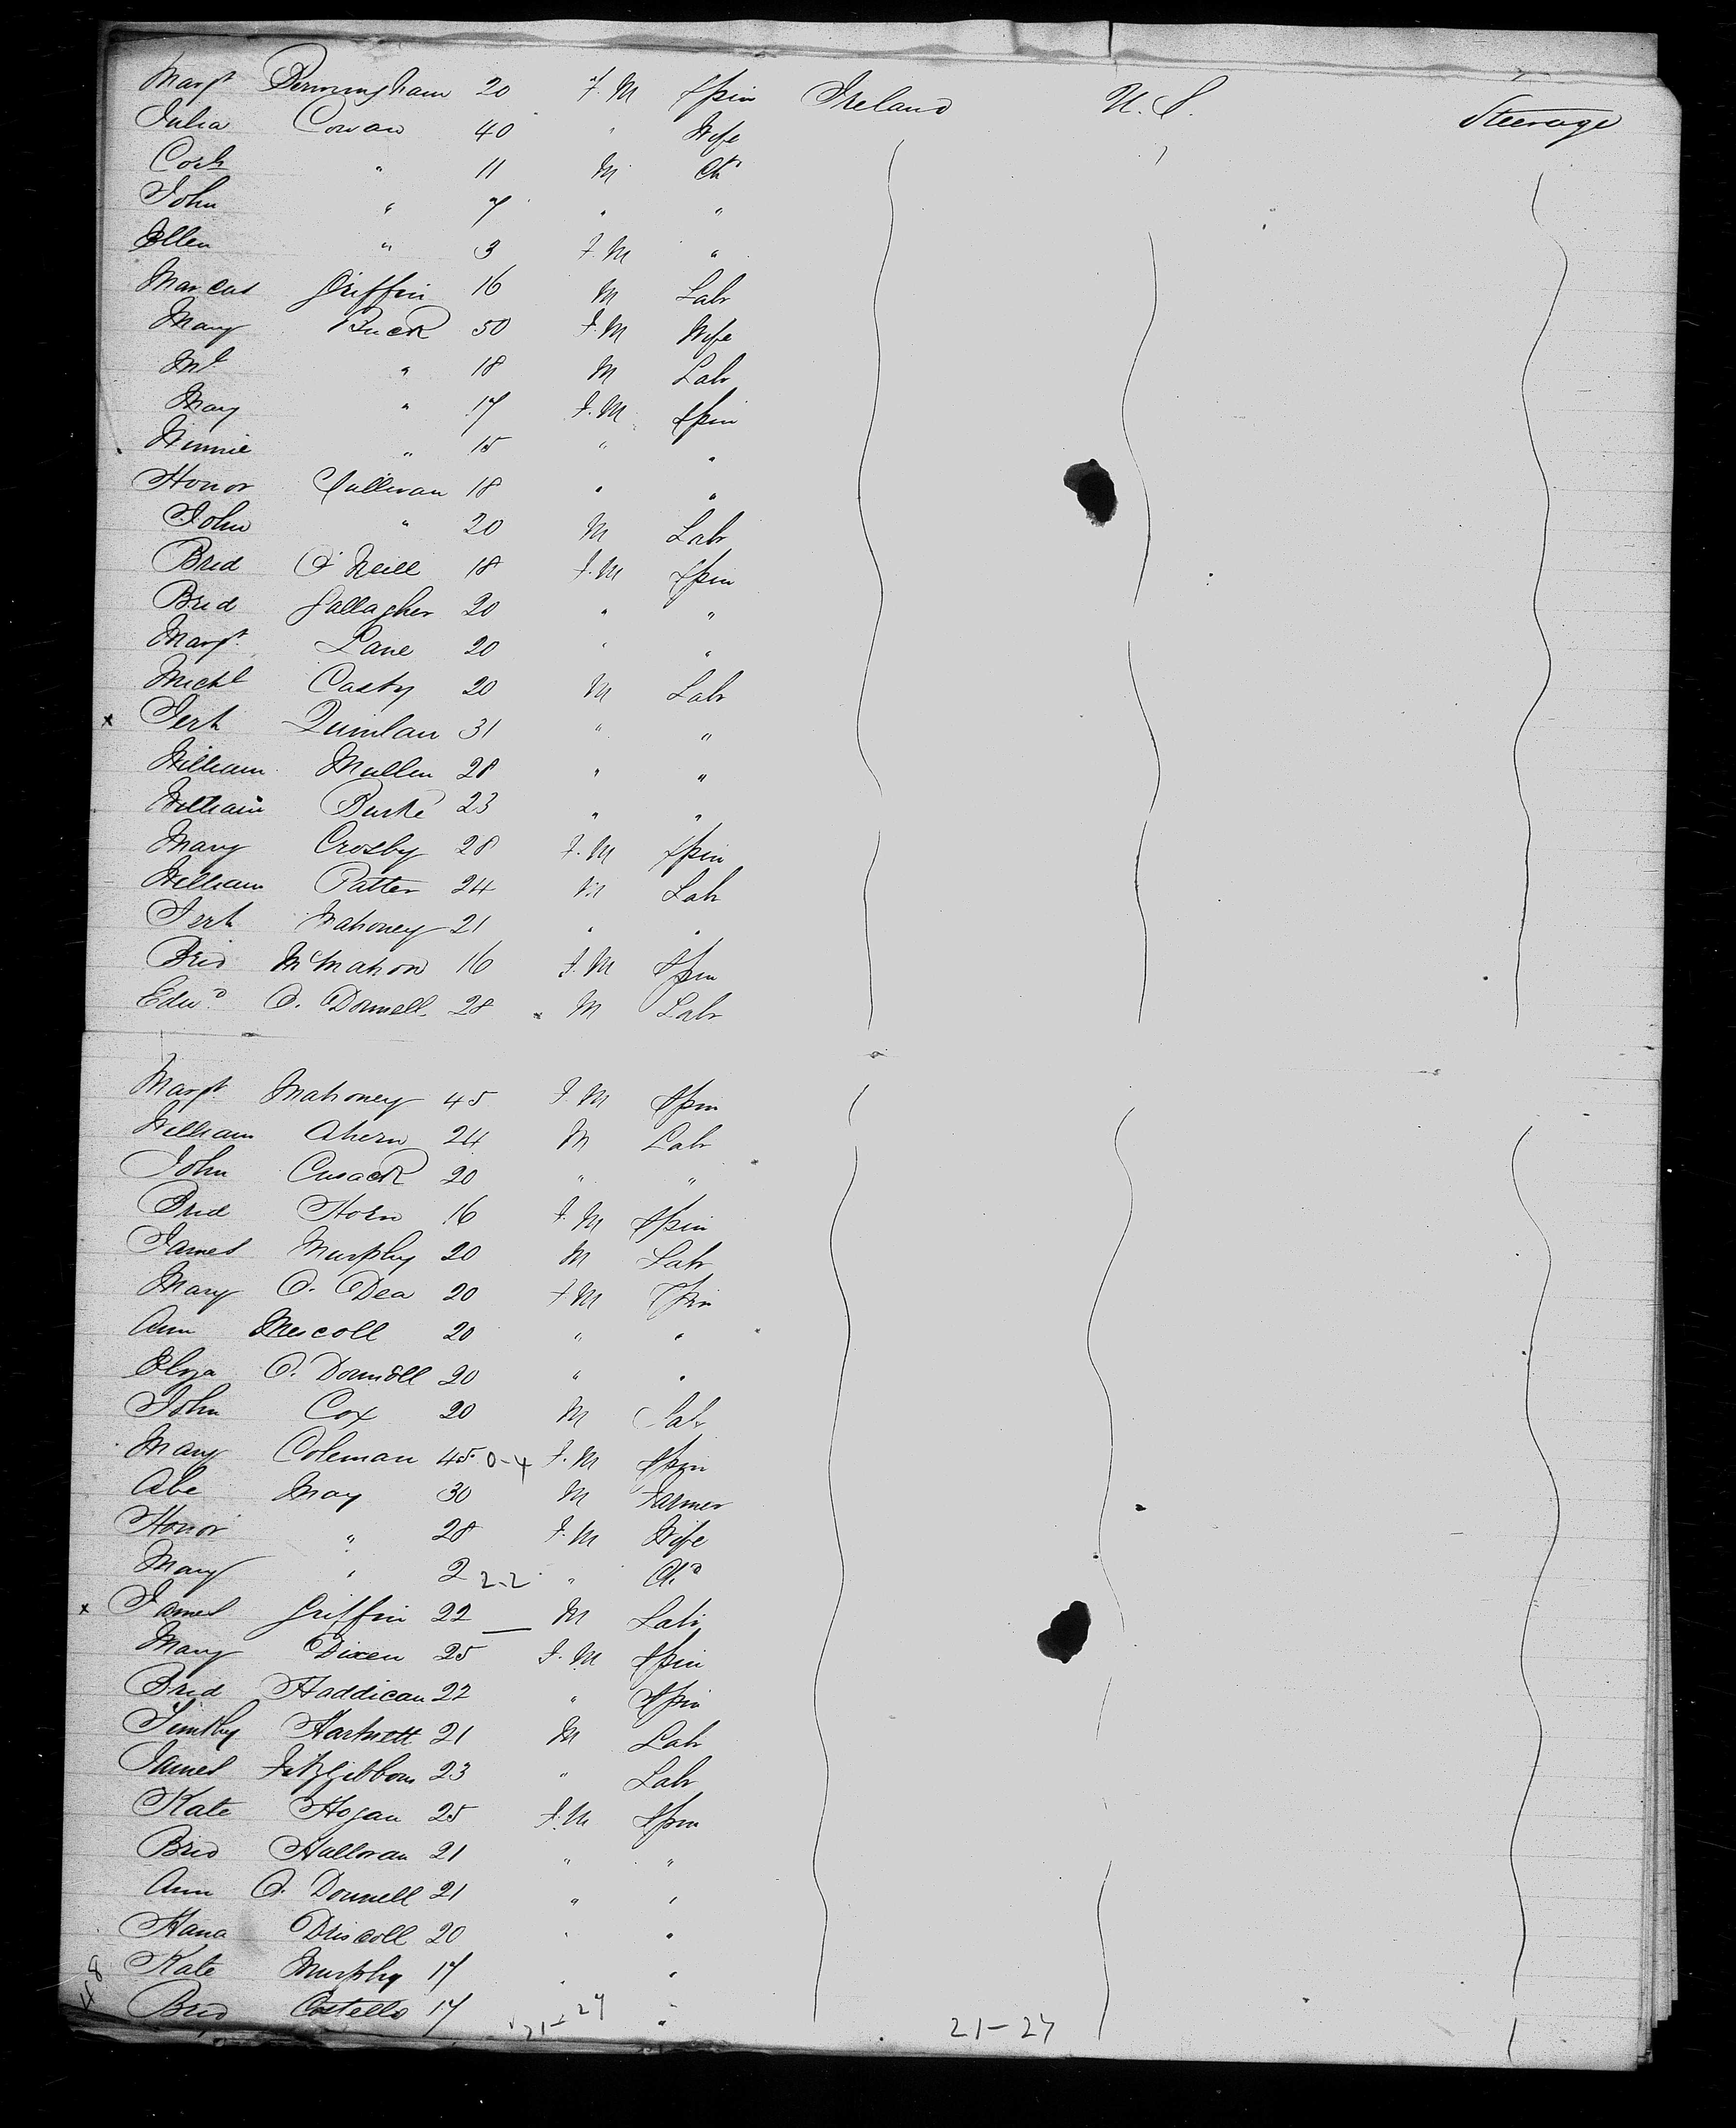 Margt Birmingham 20 F.M Spin Ireland U.S. Steerage
Julia Cowan 40 " Wife
" 11 M Ch
John " 7 " "
Ellen " 3 F.M "
Marcus Griffin 16 M Labr
Mary Buck 50 F.M Wife
Ml " 18 M Labr
Mary " 17 F.M Spin
Winnie " 15 " "
Honor Sullivan 18 " "
John " 20 M Labr
Brid O'Neill 18 F.M Spin
Brid Gallagher 20 " "
Margt Lane 20 " "
Michl Casty 20 M Labr
x Jerh Quinlan 31 " "
William Mullen 28 " "
William Burke 23 " "
Mary Crosby 28 F.M Spin
William Patter 24 M Labr
Jerh Mahoney 21 " "
Brid McMahon 16 F.M Spin
Edwd O. Donnell 28 M Labr
Margt Mahoney 45 F.M Spin
William Ahern 24 M Labr
John Cusack 20 " "
Brid Horn 16 F.M Spin
James Murphy 20 M Labr
Mary O. Dea 20 F.M Spin
Ann 20 " "
Eliza O. Donnell 20 " "
John Cox 20 M Labr
Mary Coleman 45 0-4 F.M Spin
Abe May 30 M Farmer
Honor " 28 F.M Wife
Mary " 2 2-2 " Chd
x James Griffin 22 M Labr
Mary Dixen 25 F.M Spin
Brid Haddican 22 " Spin
Timthy Hartnett 21 M Labr
James Fitzgibbons 23 " Labr
Kate Hogan 25 F.M Spin
Brid Halloran 21 " "
Ann O. Donnell 21 " "
Hana Driscoll 20 " "
Kate Murphy 17 " "
48 Brid Costello 17 21-27 " 21-27